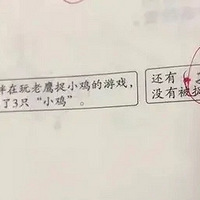 伴在玩老鹰捉小鸡的游戏,
了3只“小鸡”。
还有
没有被捉